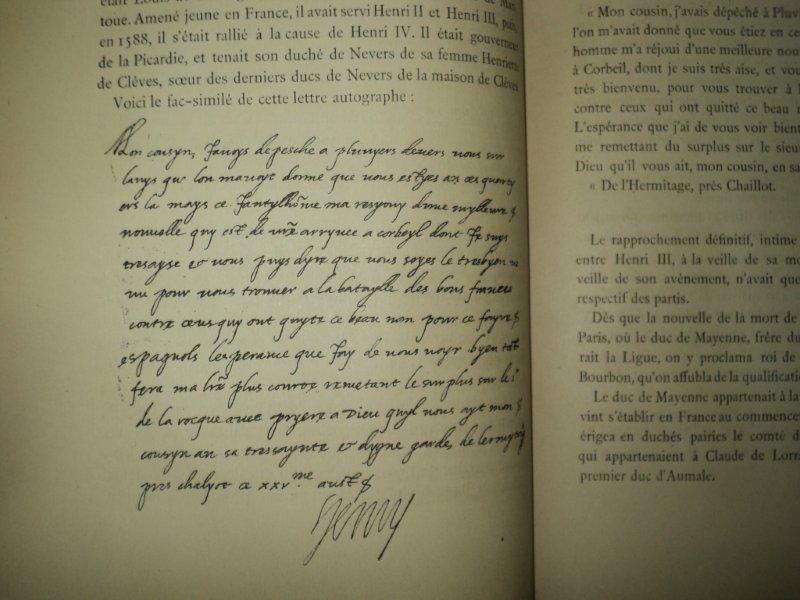 était Louis de
toue. Amené jeune en France, il avait servi Henri II et Henri III, puis,
en 1588, il s'était rallié à la cause de Henri IV. Il était gouverneur
de la Picardie, et tenait son duché de Nevers de sa femme Henriette
de Clèves, sœur des derniers ducs de Nevers de la maison de Clèves
Voici le fac-similé de cette lettre autographe :
Mon cousyn, Javoys depesche a pluvyers devers vous sur
lavys qu lon mavoyt donné que vous estyes an ces quarty
ers la mays ce Jantylhōme ma resjouy dune mylleure
nouvelle quy est de vr̄e arryvee a corbeyl dont Je suys
tresayse et vous puys dyre que vous soyes le tresbyen ve
nu pour vous trouver a la bataylle des bons
contre ceus quy ont quyté ce beau nom pour ce fayre
espagnols lesperance que Jay de vous voyr byen tôt
fera ma lr̄e plus courte remetant le surplus sur le sr
de la rocque avec pryere a Dieu quyl vous ayt mon
cousyn an sa tressaynte et dygne garde, de lermytage
pres chalyot ce xxvme aust
Henry
« Mon cousin, j'avais dépêché à
l'on m'avait donné que vous étiez en ce
homme m'a réjoui d'une meilleure nou
à Corbeil, dont je suis très aise, et vou
très bienvenu, pour vous trouver à l
contre ceux qui ont quitté ce beau n
L'espérance que j'ai de vous voir bient
me remettant du surplus sur le sieu
Dieu qu'il vous ait, mon cousin, en sa
« De l'Hermitage, près Chaillot.
Le rapprochement définitif, intime
entre Henri III, à la veille de sa mo
veille de son avènement, n'avait que
respectif des partis.
Dès que la nouvelle de la mort de
Paris, où le duc de Mayenne, frère du
rait la Ligue, on y proclama roi de
Bourbon, qu'on affubla de la qualificati
Le duc de Mayenne appartenait à la
vint s'établir en France au commence
érigea en duchés pairies le comté d
qui appartenaient à Claude de Lorr
premier duc d'Aumale.